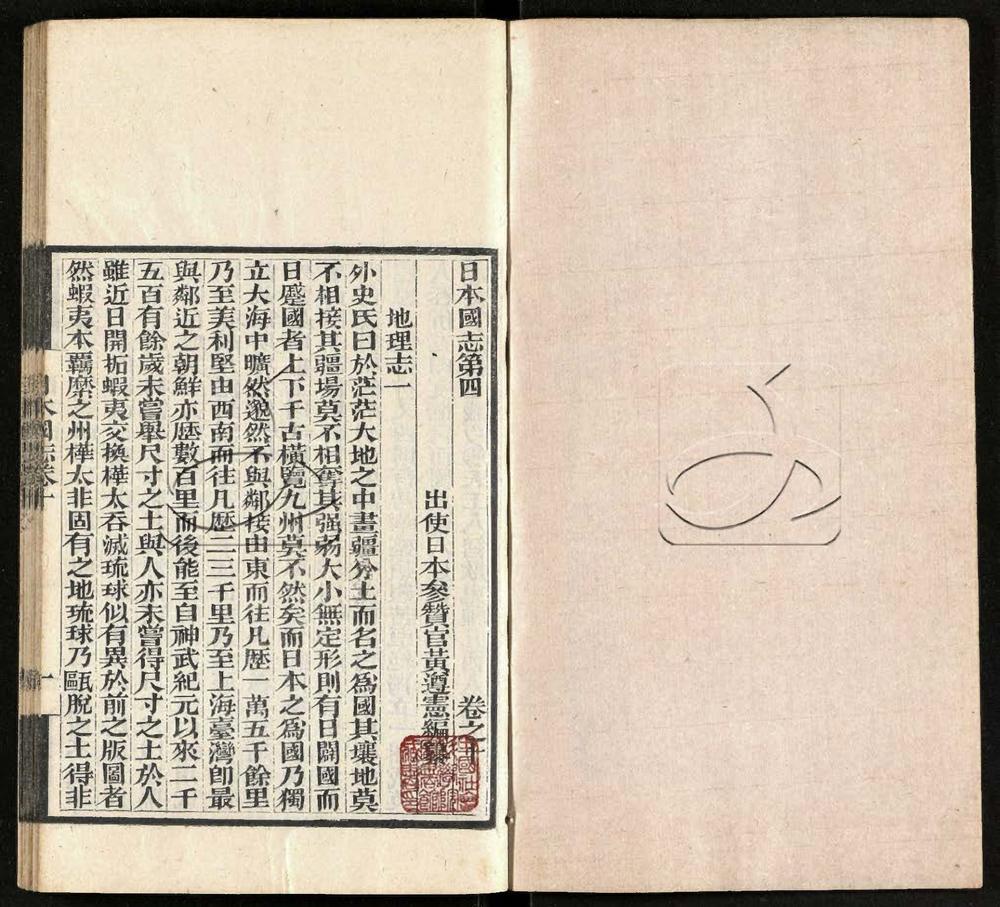 日本國志第四
卷之十
出使日本參贊官黃遵憲編纂
地理志一
外史氏曰於茫茫大地之中畫疆分土而名之為國其壤地莫
不相接其疆場莫不相奪其強弱大小無定形則有日闢國而
日蹙國者上下千古橫覽九州莫不然矣而日本之為國乃獨
立大海中曠然邈然不與鄰接由東而往凡歷一萬五千餘里
乃至美利堅由西南而往凡歷二三千里乃至上海臺灣卽最
與鄰近之朝鮮亦歷數百里而後能至自神武紀元以來二千
五百有餘歲未嘗舉尺寸之土與人亦未嘗得尺寸之土於人
雖近日開拓蝦夷交換樺太吞滅琉球似有異於前之版圖者
然蝦夷本羈縻之州樺太非固有之地琉球乃甌脫之土得非
日本國志卷十
一